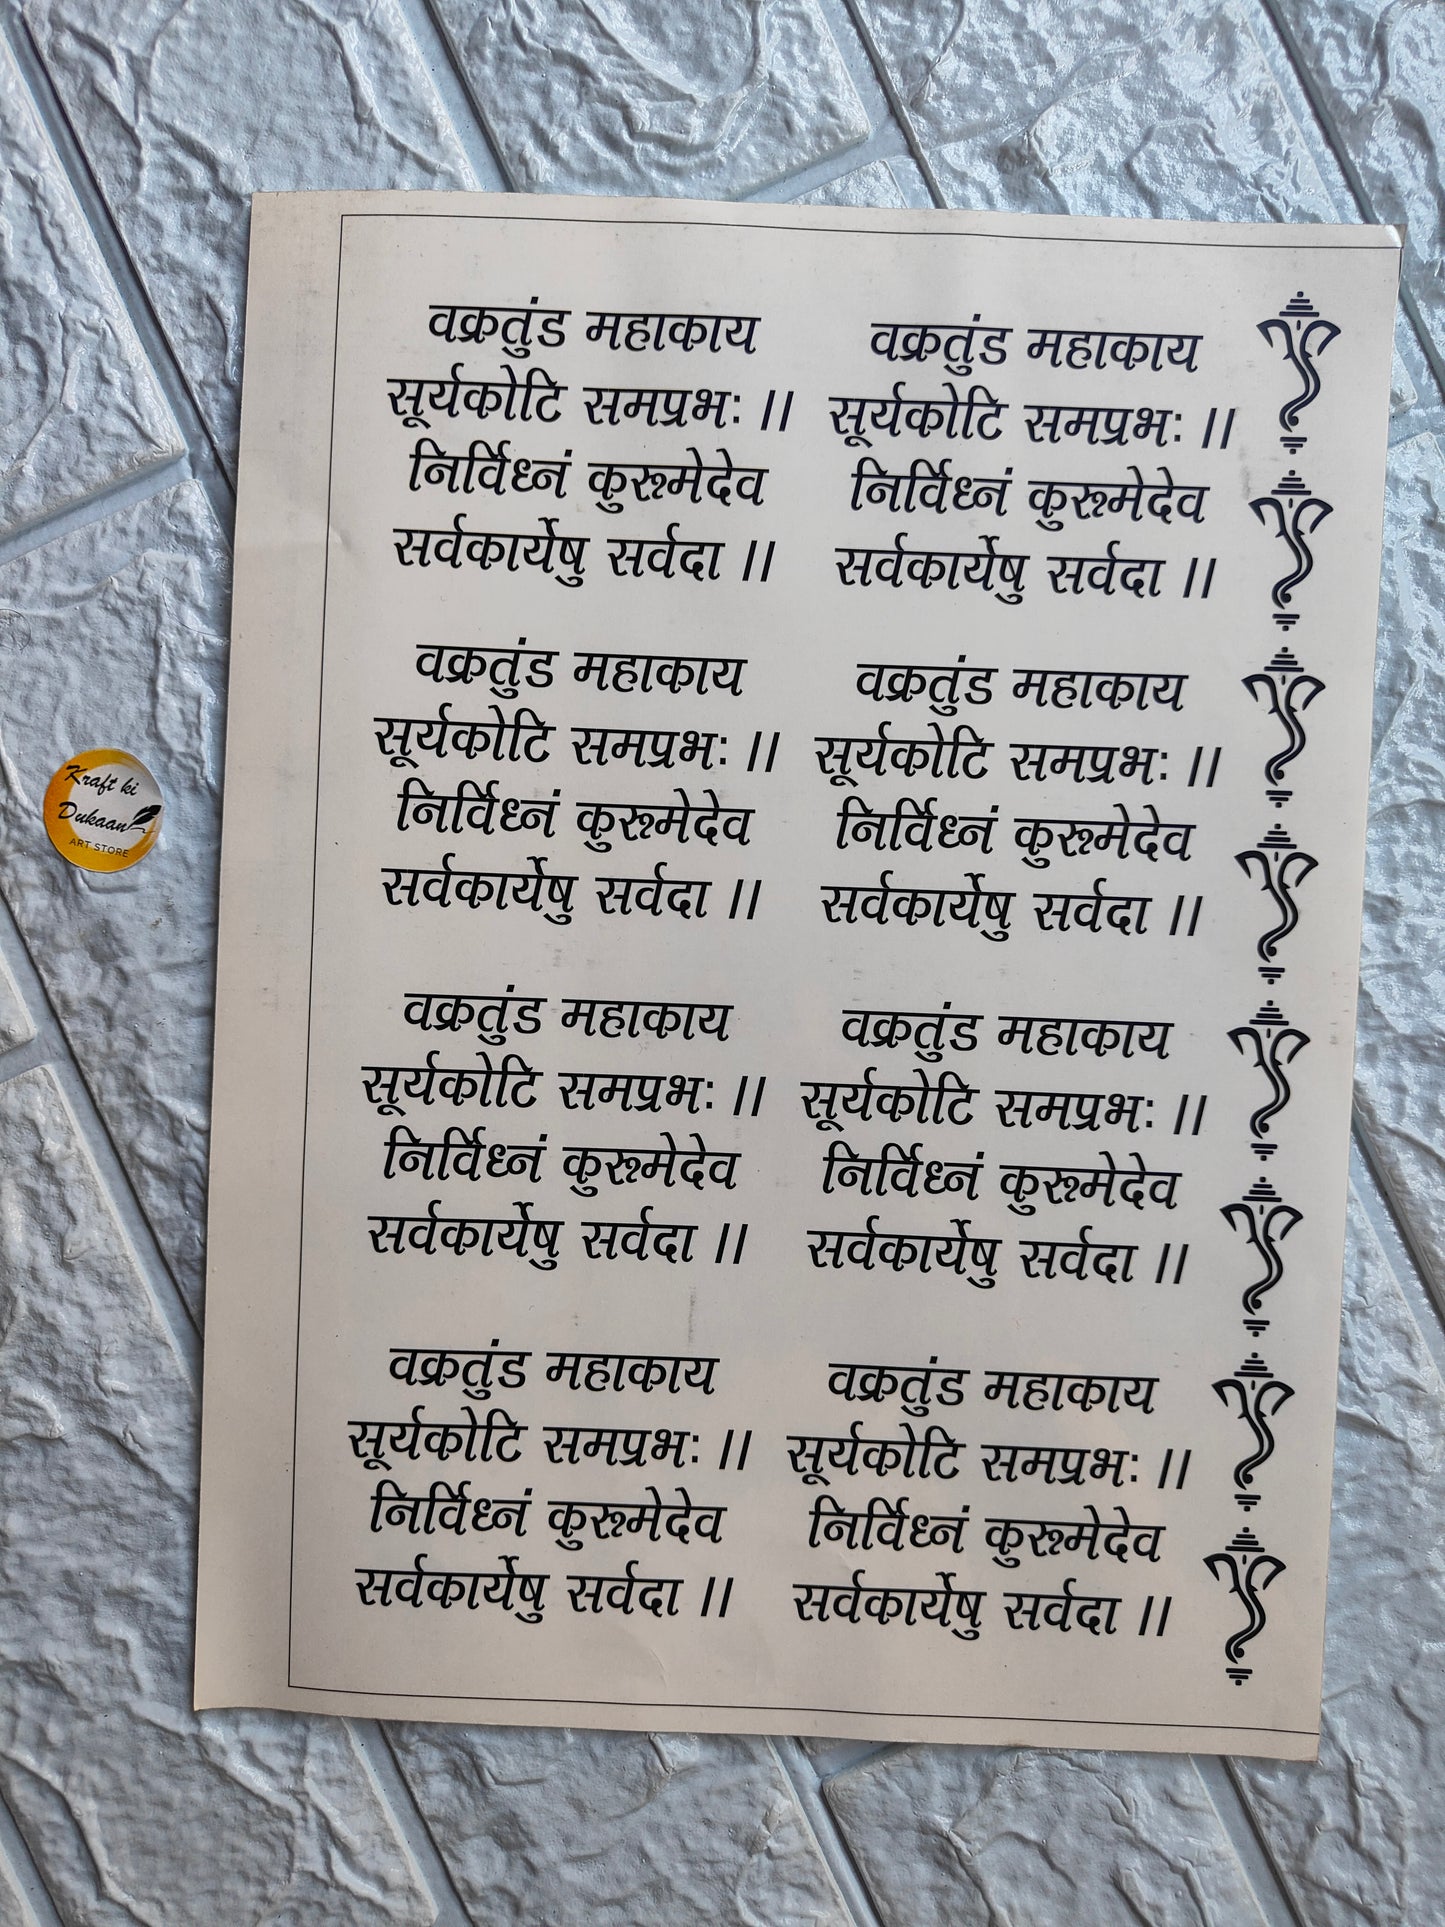 वक्रतुंड महाकाय
सूर्यकोटि समप्रभः ।।
निर्विध्नं कुरूमेदेव
सर्वकार्येषु सर्वदा ।।
वक्रतुंड महाकाय
सूर्यकोटि समप्रभः ।।
निर्विध्नं कुरूमेदेव
सर्वकार्येषु सर्वदा ।।
वक्रतुंड महाकाय
सूर्यकोटि समप्रभः ।।
निर्विध्नं कुरूमेदेव
सर्वकार्येषु सर्वदा ।।
वक्रतुंड महाकाय
सूर्यकोटि समप्रभः ।।
निर्विध्नं कुरूमेदेव
सर्वकार्येषु सर्वदा ।।
वक्रतुंड महाकाय
सूर्यकोटि समप्रभः ।।
निर्विध्नं कुरूमेदेव
सर्वकार्येषु सर्वदा ।।
वक्रतुंड महाकाय
सूर्यकोटि समप्रभः ।।
निर्विध्नं कुरूमेदेव
सर्वकार्येषु सर्वदा ।।
वक्रतुंड महाकाय
सूर्यकोटि समप्रभः ।।
निर्विध्नं कुरूमेदेव
सर्वकार्येषु सर्वदा ।।
वक्रतुंड महाकाय
सूर्यकोटि समप्रभः ।।
निर्विध्नं कुरूमेदेव
सर्वकार्येषु सर्वदा ।।
Kraft ki
Dukaan
ART STORE